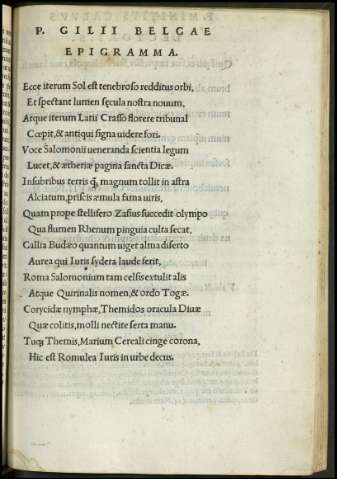 P. GILII BELGAE
EPIGRAMMA.
Ecce iterum Sol est tenebroso redditus orbi,
Et spectant lumen sęcula nostra nouum,
Atque iterum Latii Crasso florere tribunal
Cœpit, & antiqui signa uidere fori.
Voce Salomonii ueneranda scientia legum
Lucet, & ætheriæ pagina sancta Dicæ.
Insubribus terris q, magnum tollit in astra
Alciatum, priscis æmula fama uiris,
Quam prope stellifero Zasius succedit olympo
Qua flumen Rhenum pinguia culta secat,
Gallia Budæo quantum uiget alma diserto
Aurea qui Iuris sydera laude ferit,
Roma Salomonium tam celsis extulit alis
Atque Quirinalis nomen, & ordo Togæ.
Corycidæ nymphæ, Themidos oracula Diuæ
Quæ colitis, molli nectite serta manu.
Tuq; Themis, Marium Cereali cinge corona,
Hic est Romulea Iuris in urbe decus.